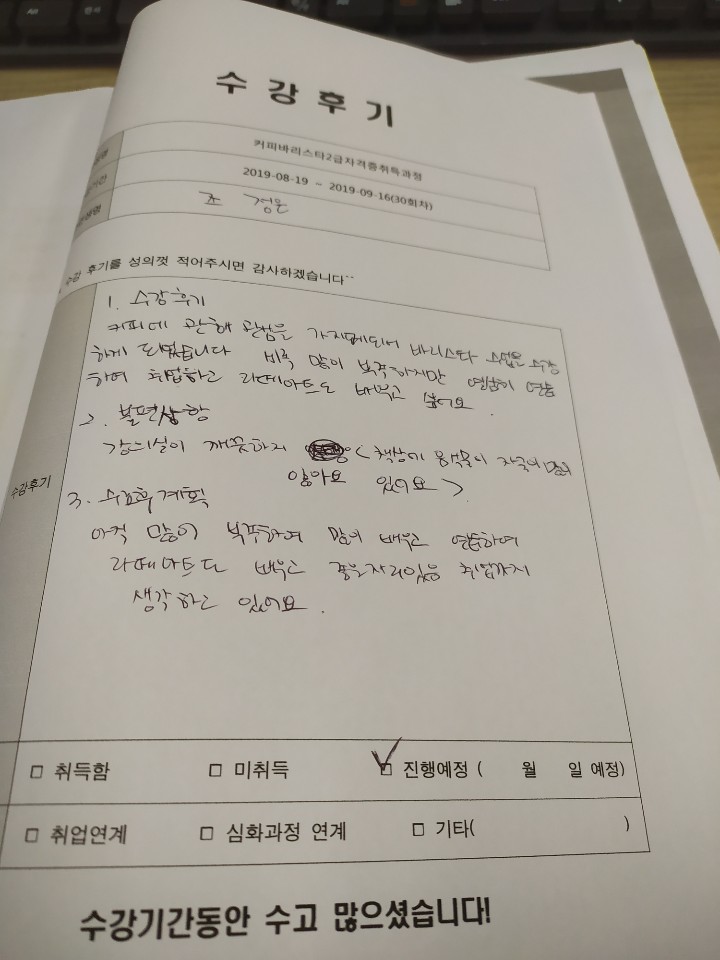 수 강 후 기
커피바리스타2급자격증취득과정
기간
2019-08-19 ~ 2019-09-16(30회차)
조 경은
수강 후기를 성의껏 적어주시면 감사하겠습니다~~
수강후기
1. 수강후기
커피에 관해 관심을 가지게되어 바리스타 수업을 수강
하게 되었습니다 비록 많이 부족하지만 열심히 연습
하여 취업하고 라떼아트도 배우고 싶어요.
2. 불편사항
강의실이 깨끗하지 < 책상에 음식물이 자국이
않아요 있어요 >
3. 수료후 계획
아직 많이 부족하여 많이 배우고 연습하여
라떼아트도 배우고 좋은자리있음 취업까지
생각하고 있어요.
□ 취득함 □ 미취득 ☑ 진행예정 ( 월 일 예정)
□ 취업연계 □ 심화과정 연계 □ 기타( )
수강기간동안 수고 많으셨습니다!